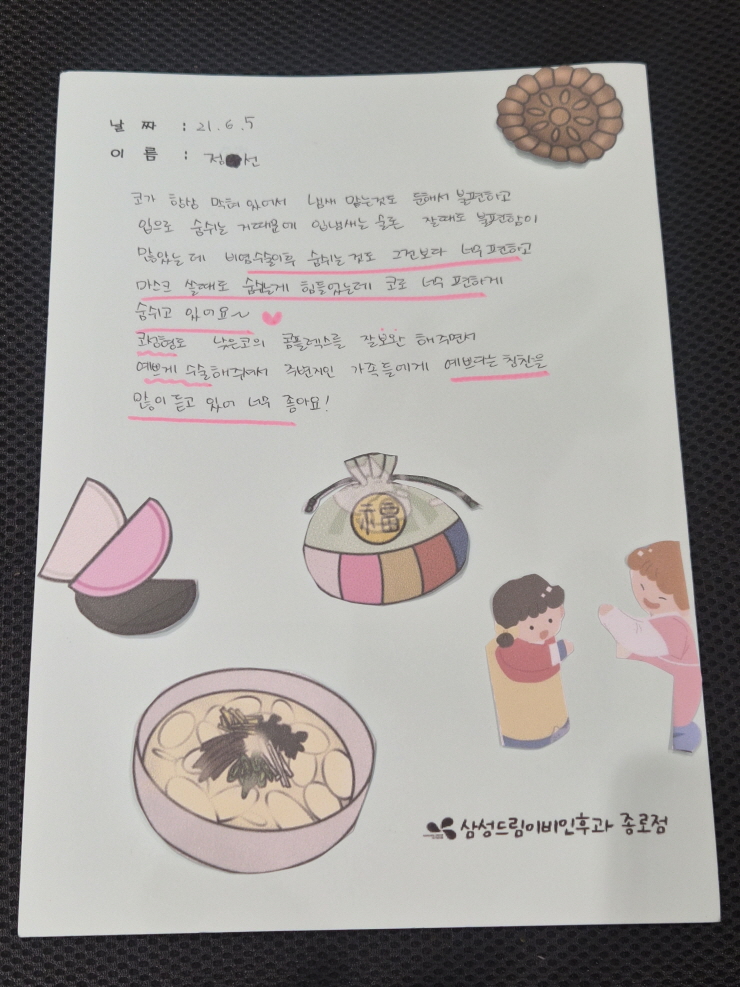 날 짜 : 21. 6. 5
이 름 : 정 선
코가 항상 막혀 있어서 냄새 맡는것도 둔해서 불편하고
입으로 숨쉬는 거때문에 입냄새는 물론 잘때도 불편함이
많았는데 비염수술이후 숨쉬는 것도 그전보다 너무 편하고
마스크 쓸때도 숨쉬는게 힘들었는데 코로 너무 편하게
숨쉬고 있어요~
코성형도 낮은코의 콤플렉스를 잘보완 해주면서
예쁘게 수술해주셔서 주변지인 가족들에게 예쁘다는 칭찬을
많이 듣고 있어 너무 좋아요!
福
삼성드림이비인후과 종로점